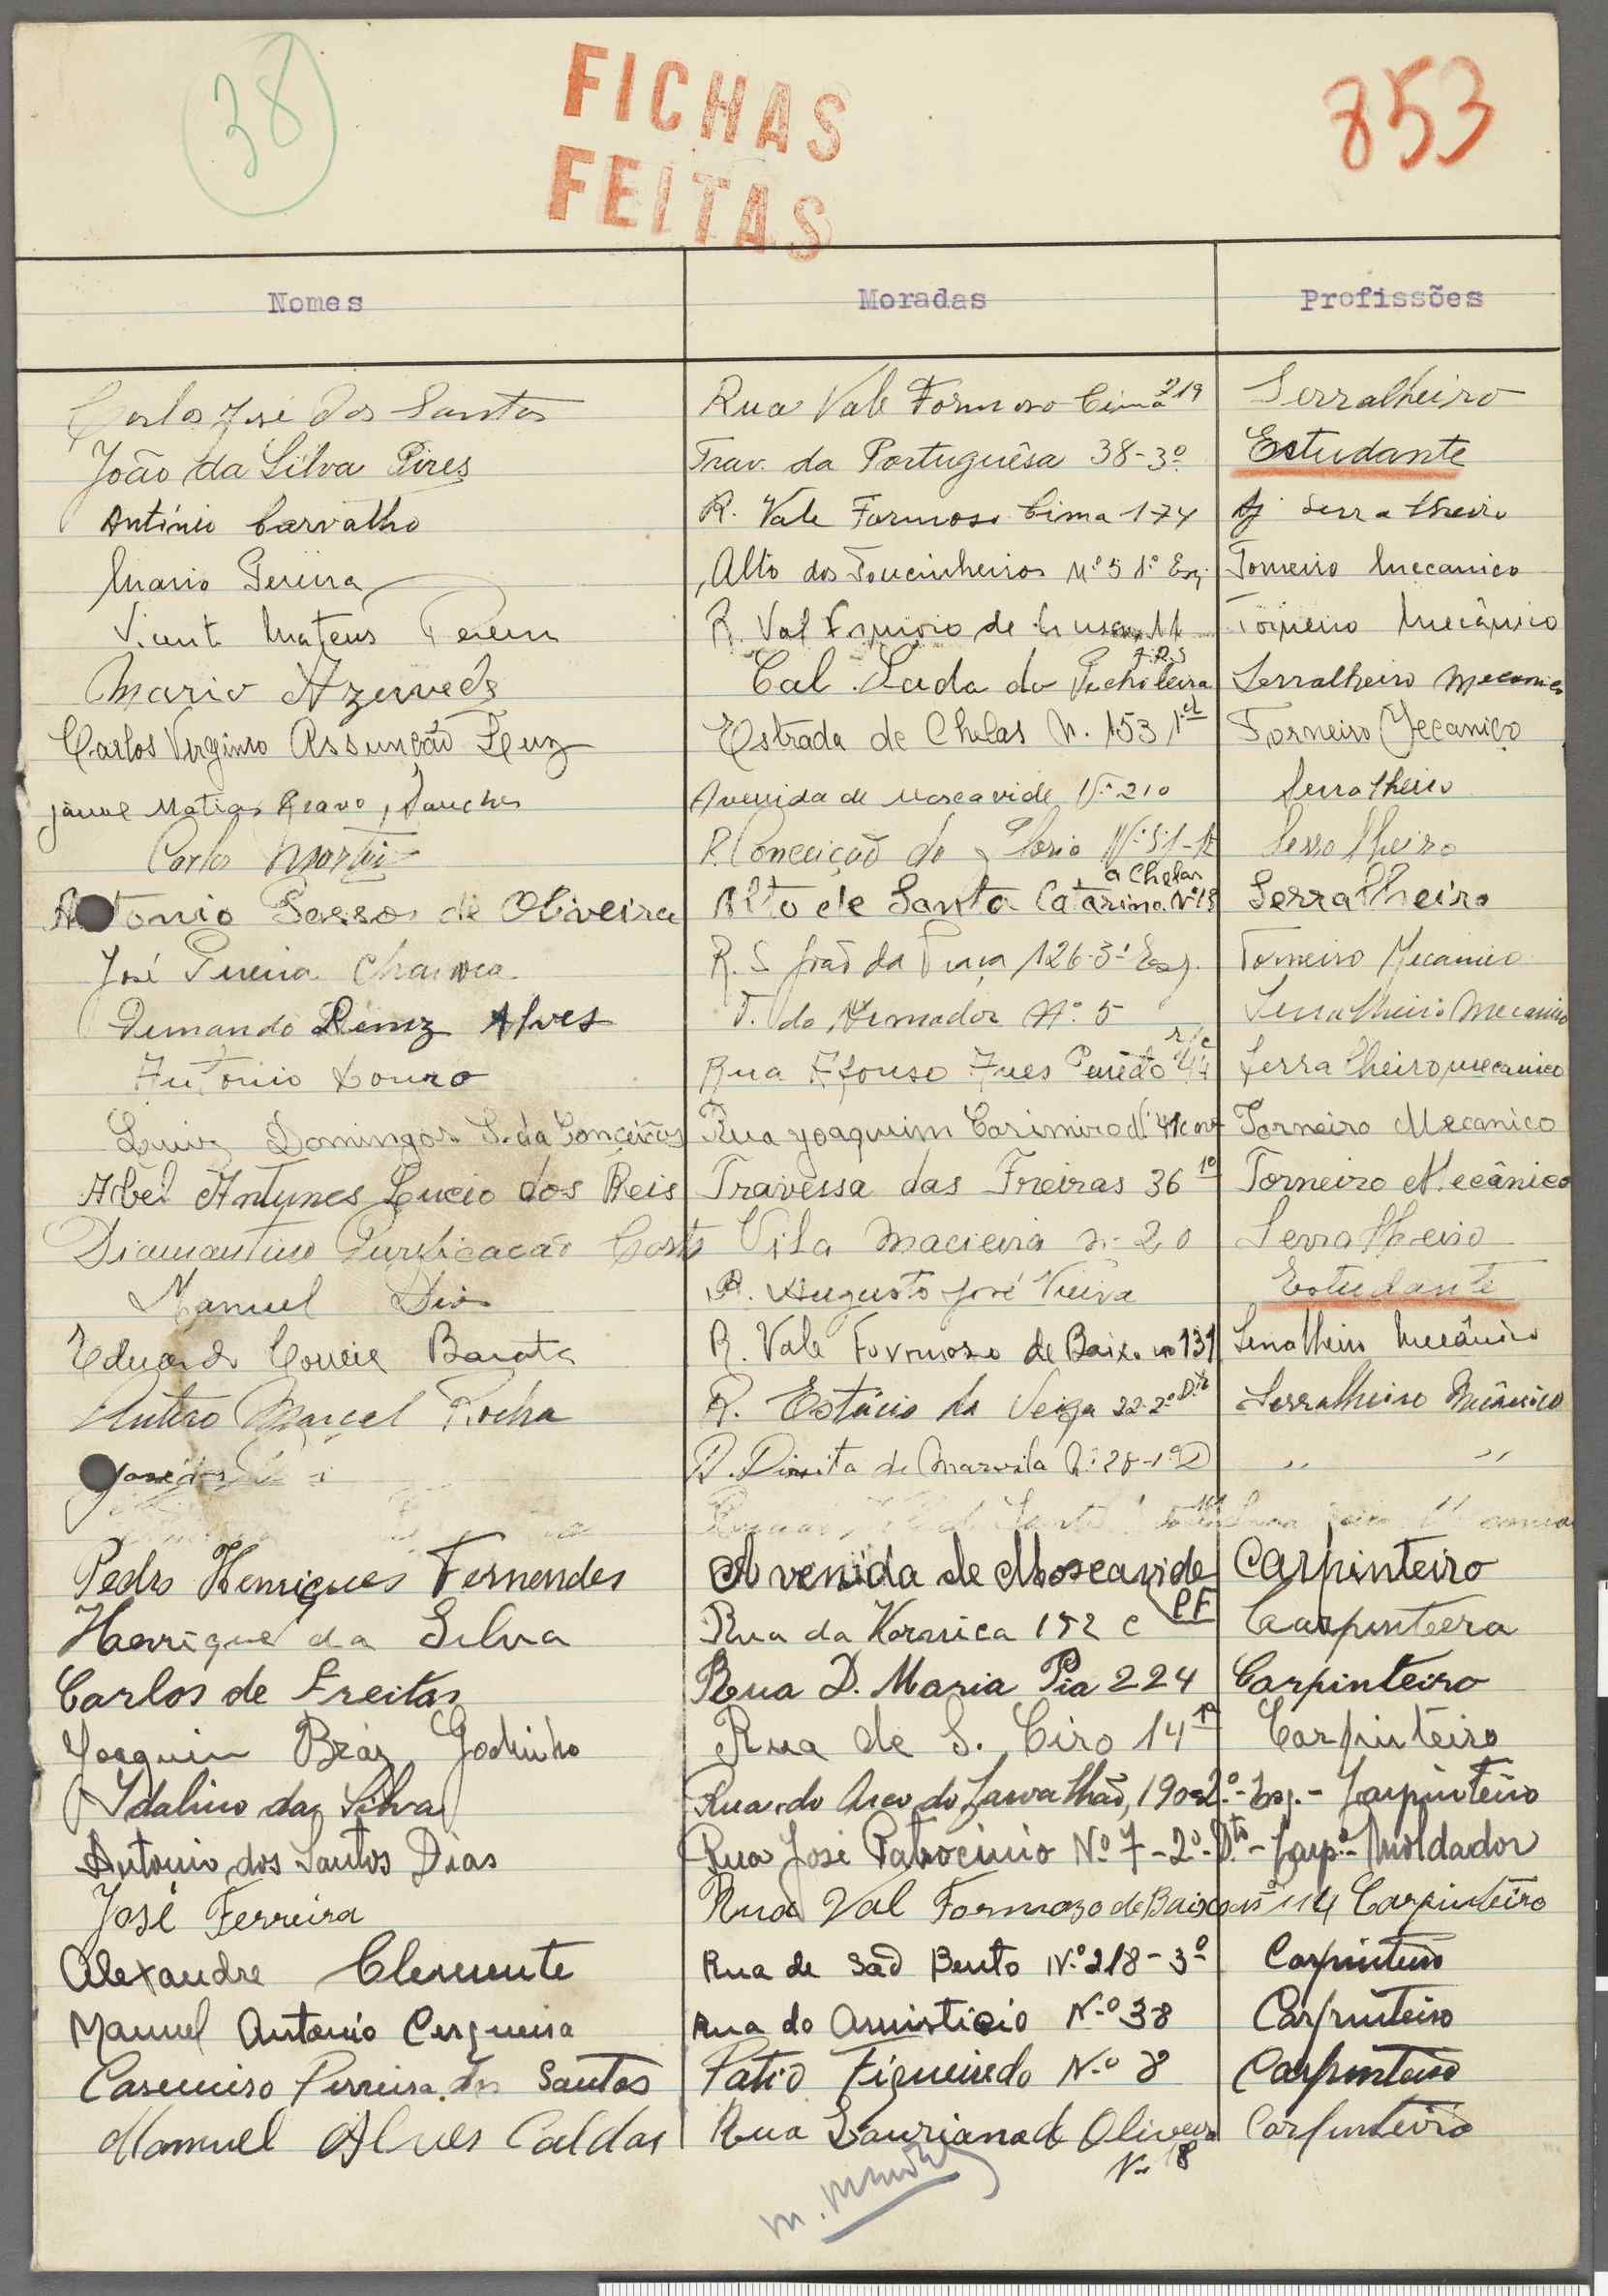 38
FICHAS
FEITAS
853
Nomes Moradas Profissões
Carlos José dos Santos Rua Vale Formoso Cima 219 Serralheiro
João da Silva Pires Trav. da Portuguêsa 38-3º Estudante
António Carvalho R. Vale Formoso Cima 174 Aj Serralheiro
Mario Pereira Alto dos Toucinheiros Nº 5 1º Esq. Torneiro Mecanico
Mateus R. Val Formoso de 11 Torneiro Mecânico
Mario Azevedo Cal.Lada da Picheleira Serralheiro Mecanico
Carlos Virginio Assunção Estrada de Chelas N. 153 1º Torneiro Mecanico
Jaime Matias Avenida de Moscavide Nº 210 Serralheiro
Carlos Martins R. Conceição da Gloria Nº 51 Serralheiro
a Chelas
António Passos de Oliveira Alto de Santa Catarina Nº 18 Serralheiro
José Pereira R. S. João da Praça 126-3º Esq. Torneiro Mecanico
Fernando Diniz Alves T. do Armador Nº 5 Serralheiro Mecanico
r/c
António Louro Rua Afonso Anes Penedo 44 Serralheiro mecanico
Luiz Domingos S. da Conceição Rua Joaquim Casimiro Torneiro Mecanico
Abel Antunes Lucio dos Reis Travessa das Freiras 36 1º Torneiro Mecânico
Diamantino Purificacão Costa Vila Macieira nº 20 Serralheiro
Manuel Dias R. Augusto José Vieira Estudante
Eduardo Correia Barata R. Vale Formoso de Baixo nº 131 Serralheiro Mecânico
Antero Marcel Rocha R. Estácio da Veiga 22-2º Dto Serralheiro Mecânico
José dos R. Direita de Marvila Nº 28-1º D " "
Pedro Henriques Fernendes Avenida de Moscavide Carpinteiro
PF
Henrique da Silva Rua da 152 C Carpinteiro
Carlos de Freitas Rua D. Maria Pia 224 Carpinteiro
Joaquim Bráz Godinho Rua de S. Ciro 14 Carpinteiro
Idalino da Silva Rua do Arco do Carvalhão, 190-2º-Esq.- Carpinteiro
Antonio dos Santos Dias Rua José Patrocinio Nº 7-2º-Dto- Carpº- Moldador
José Ferreira Rua Val Formozo de Baixo nº 114 Carpinteiro
Alexandre Clemente Rua de São Bento Nº 218-3º Carpinteiro
Manuel Antonio Cerqueira Rua do Armisticio Nº 38 Carpinteiro
Casemiro Ferreira dos Santos Patio Figueiredo Nº 8 Carpinteiro
Manuel Alves Caldas Rua Lauriana de Oliveira Carpinteiro
Nº 18